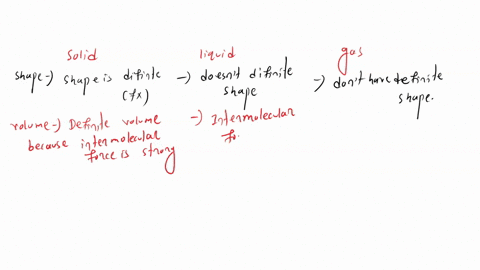 solid liquid gas
shape -> shape is difinte -> doesn't difinite -> don't have definite
(fx) shape shape.
volume -> Definite volume -> Intermolecular
because intermolecular fo
force is strong